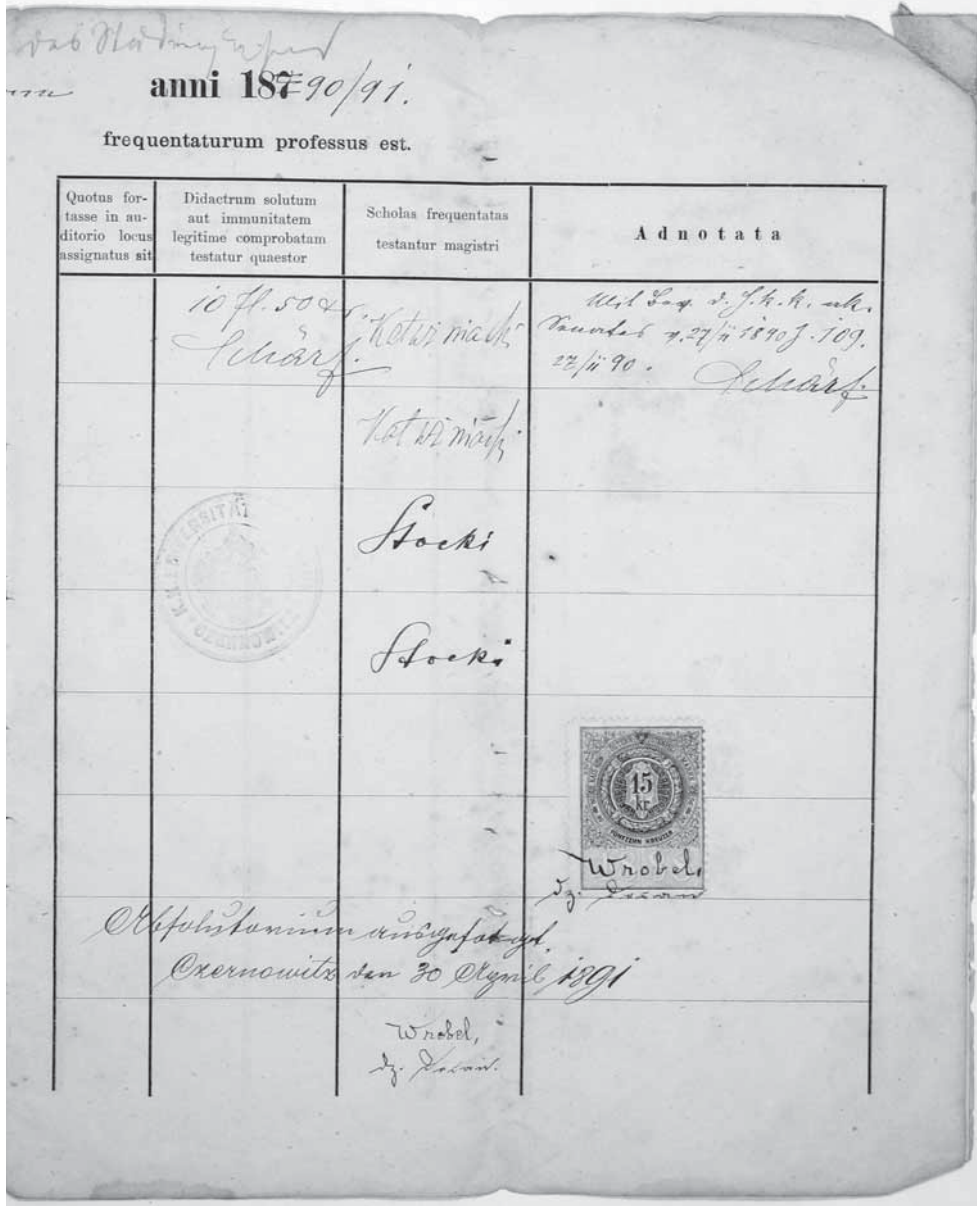 das
anni 187 90/91.
frequentaturum professus est.
Quotus for-
tasse in au-
ditorio locus
assignatus sit
Didactrum solutum
aut immunitatem
legitime comprobatam
testatur quaestor
Scholas frequentatas
testantur magistri
Adnotata
10 fl. 50
Schärf.
Kałużniacki
Mit Bew. d. h. k. k. ak.
Senates v. 27/II 1890 Z. 109.
27/II 90.
Schärf.
Kałużniacki
Stocki
Stocki
15
kr.
FÜNFZEHN KREUZER
Wrobel,
dz. Decan
Absolutorium ausgefertigt.
Czernowitz den 30 April 1891
Wrobel,
dz. Decan.